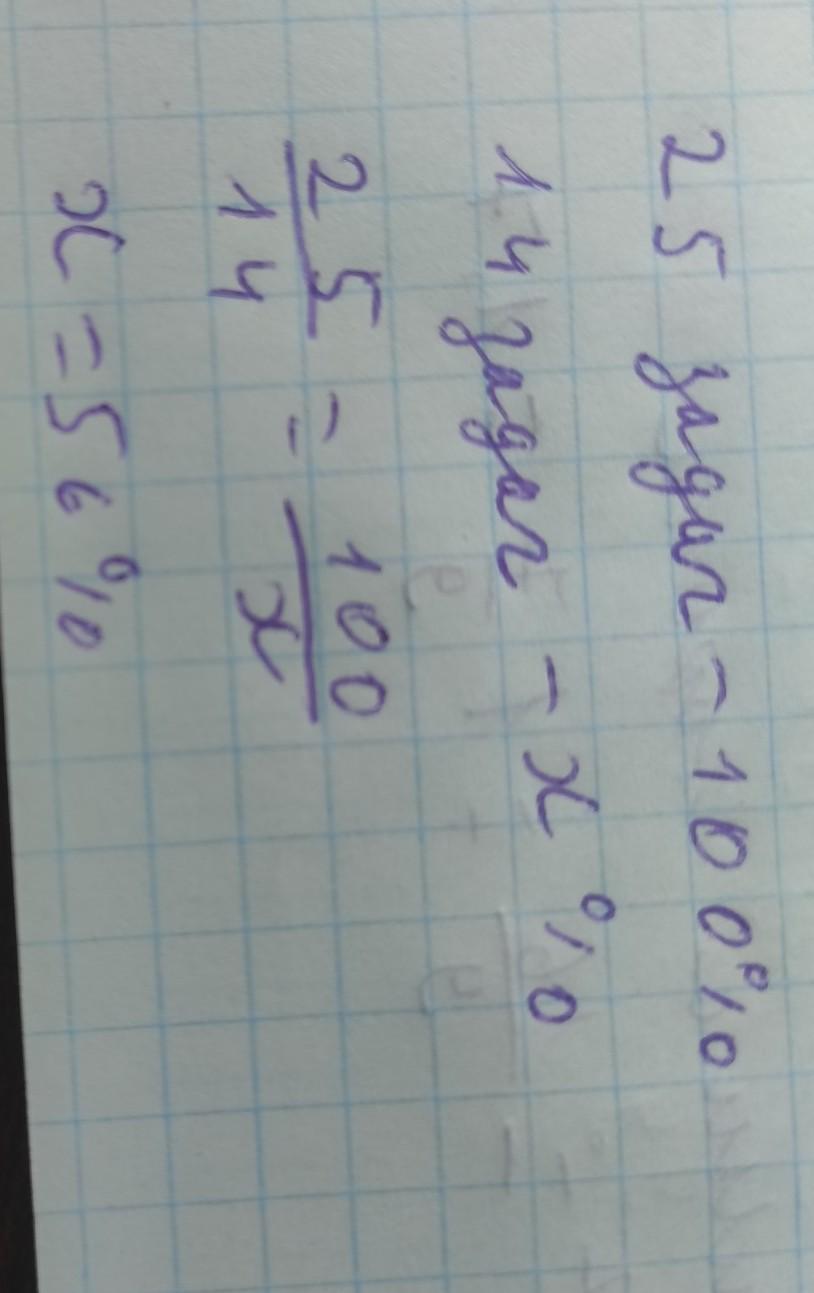 25 задач - 100%
14 задач - x %
25/14 = 100/x
x = 56%